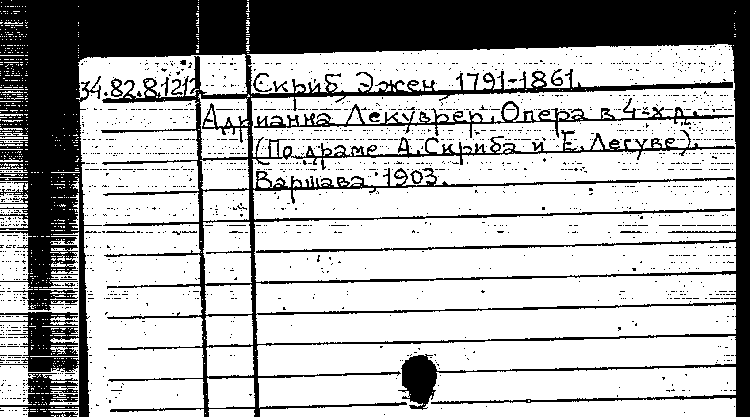 34.82.8.1212 Скриб, Эжен, 1791-1861.
Адрианна Лекуврер. Опера в 4-х д.
(По драме А. Скриба и Е. Легуве).
Варшава, 1903.